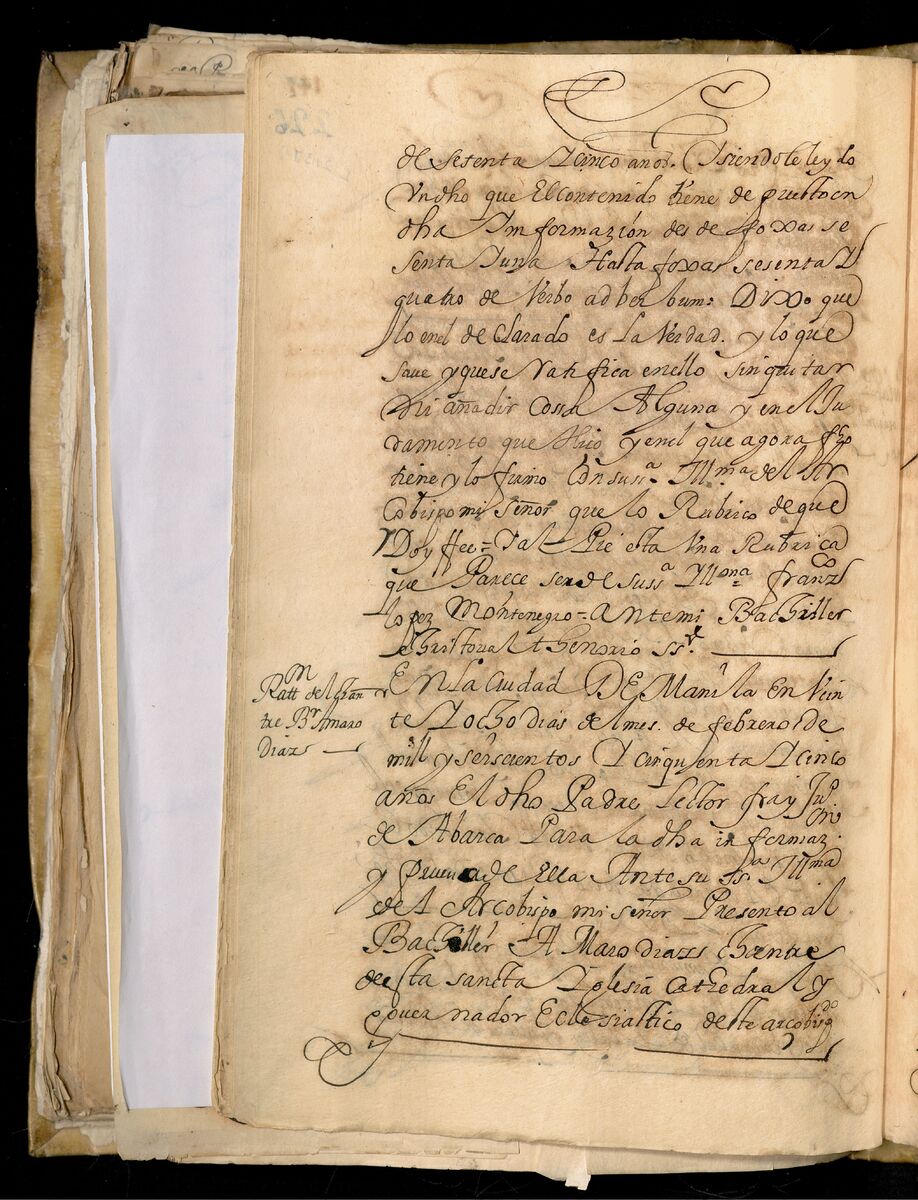 de sesenta I cinco años. Isiendole leydo
Vn dho que El contenido tiene de puesto en
dha Imformazión desde foxas se
senta I una Hasta foxas sesenta I
quatro de Verbo ad berbum: Dixo que
lo en el de Clarado es La Verdad. y lo que
save y que se Ratifica en ello sin quitar
Ni añadir Cossa Alguna y en el Ju
ramento que Hico y en el que agora fho
tiene y lo firmo Con su sª. Illmª. del Ar
Cobispo mi Señor que lo Rubrico de que
Doy ffee = Y al Pie esta Una Rubrica
que Parece ser de su ssª Yllmª franco
lopez Montenegro = Ante mi Bachiller
Christoval thenorio ssº.
Rattn del Chan
tre Br Amaro
Diaz
En La Ciudad DE Manila En Vein
te I ocho dias del mes. de febrero de
mill y seiscientos I cinquenta I cinco
años El dho Padre Lector fray Juº
de Abarca Para la dha informazon.
y prueva de Ella Ante su ssª Illma
del Arcobispo mi señor Presento al
Bachiller A Maro diazs Chantre
de esta sancta Iglesia Cathedral y
governador Eclesiastico deste arcobispdo